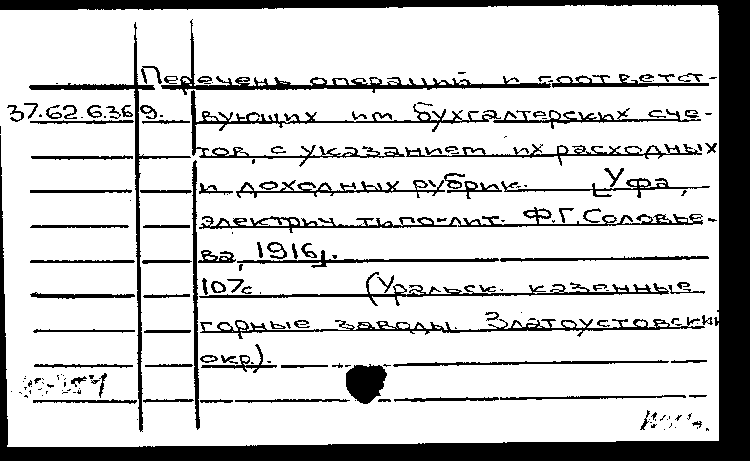 Перечень операций и соответст-
37.62.6369. вующих им бухгалтерских сче-
тов, с указанием их расходных
и доходных рубрик. [Уфа,
электрич. типо-лит. Ф.Г. Соловье-
ва, 1916].
107с. (Уральск. казенные
горные заводы. Златоустовский
окр).